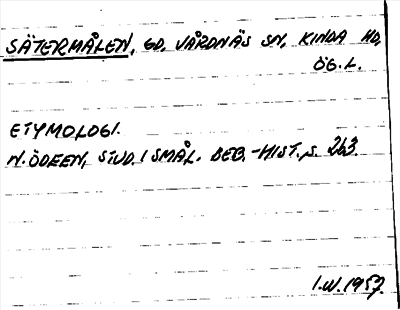 SÄTERMÅLEN, GD, VÅRDNÄS SN, KINDA HD,
ÖG.L.
ETYMOLOGI.
N. ÖDEEN, STUD. I SMÅL. BEB.-HIST., S. 263.
I.W. 1957.